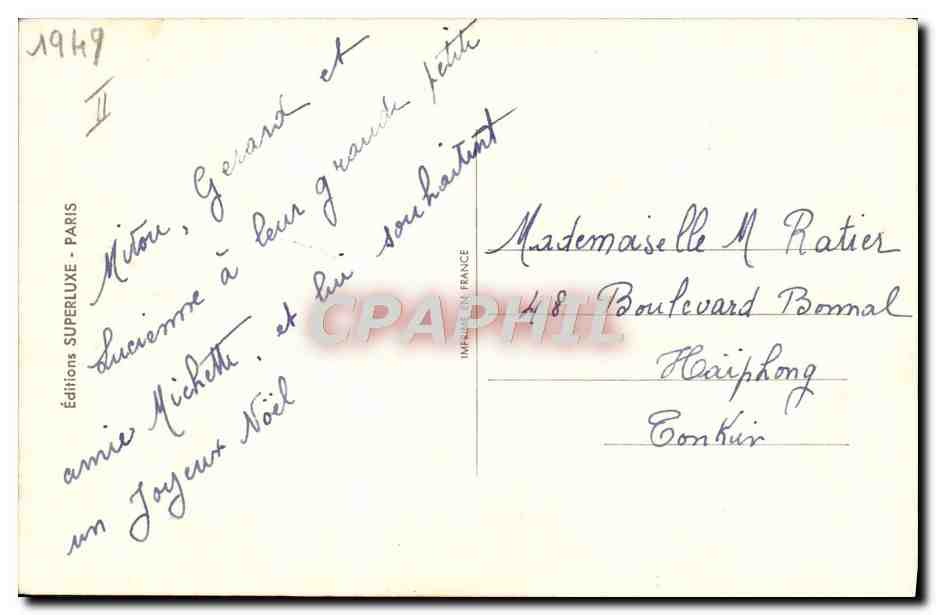 1949
II
Mitou, Gerard et
Lucienne à leur grande petite
amie Michette, et lui souhaitent
un Joyeux Nöel
Éditions SUPERLUXE - PARIS
IMPRIMÉ EN FRANCE
CPAPHIL
Mademaiselle M Ratier
48 Boulevard Bonnal
Haïphong
Tonkin